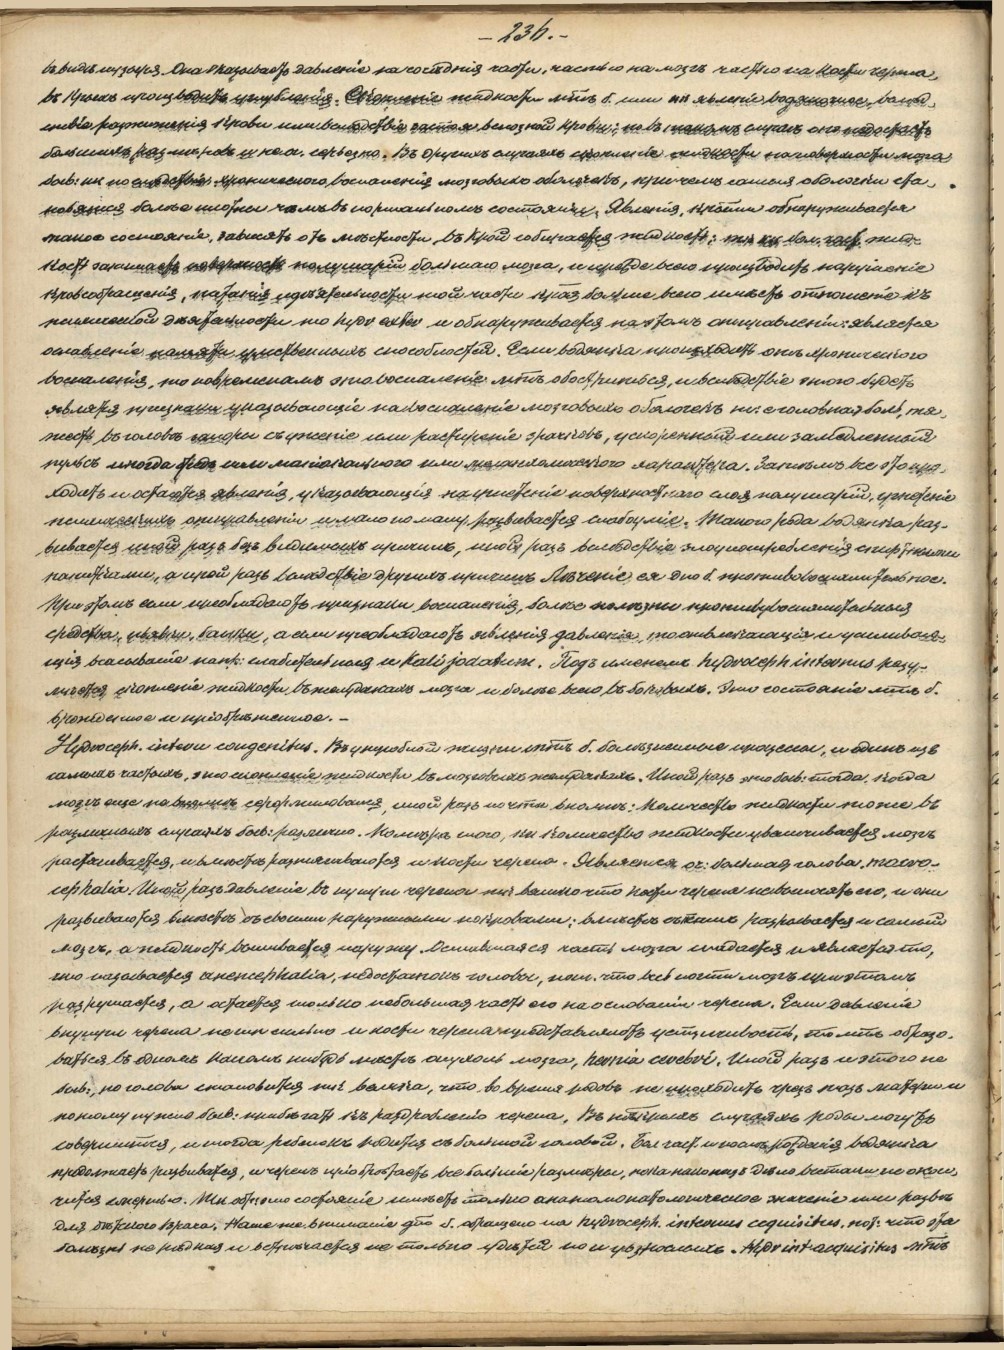 – 236. –
въ видѣ пузыря. Она оказываетъ давленіе на сосѣднія части, частью на мозгъ частью на кости черепа,
въ крыхъ производитъ углубленія. Скопленіе жидкости м‑тъ б. или явленіе водяночное, вслѣд‑
ствіе разжиженія крови или вслѣдствіе застоя венозной крови; но въ такомъ случаѣ оно недостаетъ
большихъ размѣровъ и не серьезно. Въ другихъ случаяхъ скопленіе жидкости на поверхности мозга
быв: послѣдствіе хроническаго воспаленія мозговыхъ оболочекъ, причемъ самыя оболочки ста‑
новятся болѣе плотны чѣмъ въ нормальномъ состояніи. Явленія, крыми обнаруживается
такое состояніе, зависятъ отъ мѣстности, въ крой собирается жидкость; бол. част. жид‑
кость занимаетъ поверхность полушарій большаго мозга, и прежде всего производитъ нарушеніе
кровообращенія, питанія и дѣятельности той части края больше всего имѣетъ отношеніе къ
психической дѣятельности то hydr exter и обнаруживается на этомъ отправленіи: является
ослабленіе памяти умственныхъ способностей. Если водянка происходитъ отъ хроническаго
воспаленія, то повременамъ это воспаленіе м‑тъ обостриться, и вслѣдствіе этого будетъ
являться признаки указывающіе на воспаленіе мозговыхъ оболочекъ головная боль, тя‑
жесть въ головѣ запоры съуженіе или расширеніе зрачковъ, ускоренный или замедленный
пульсъ иногда бредъ или маніакальнаго или меланхолическаго характера. Затѣмъ все это про‑
ходитъ и остаются явленія, указывающія на угнетеніе поверхностнаго слоя полушарій, угнетеніе
психическихъ отправленій и мало по малу развивается слабоуміе. Такого рода водянка раз‑
вивается иной разъ безъ видимыхъ причинъ, иной разъ вслѣдствіе злоупотребленія спиртными
напитками, а иной разъ вслѣдствіе другихъ причинъ Лѣченіе ея д‑но б. противовоспалительное.
При этомъ если преобладаютъ признаки воспаленія, болѣе полезны противувоспалительныя
средства, піявки, банки, а если преобладаютъ явленія давленія, то отвлекающія и усиливаю‑
щія всасываніе напр: слабительныя и Kali jodatum. Подъ именемъ hydroceph internus разу‑
мѣется скопленіе жидкости въ желудкахъ мозга и болѣе всего въ боковыхъ. Это состояніе м‑тъ б.
врожденное и пріобрѣтенное. –
Hydroceph. intern congenitus. Въ утробной жизни м‑тъ б. болѣзненные процессы, и одинъ изъ
самыхъ частыхъ, это скопленіе жидкости въ мозговыхъ желудочкахъ. Иной разъ это быв: тогда, когда
мозгъ еще не вполнѣ сформировался, иной разъ почти вполнѣ: Количество жидкости тоже въ
различныхъ случаяхъ быв: различно. По мѣрѣ того, кк количество жидкости увеличивается мозгъ
растягивается, и вмѣстѣ растягиваются и кости черепа. Является оч: большая голова, macro‑
cephalia. Иной разъ давленіе въ нутри черепа такъ велико что кости черепа не выносятъ его, и они
разрываются вмѣстѣ съ своими наружными покровами; вмѣстѣ съ тѣмъ разрывается и самый
мозгъ, а жидкость выливается наружу. Оставшаяся часть мозга и является то,
что называется anencephalia, недостатокъ головы, пот. что весь почти мозгъ при этомъ
разрушается, а остается только небольшая часть его на основаніи черепа. Если давленіе
внутри черепа не такъ сильно и кости черепа представляютъ устойчивость, то м‑тъ образо‑
ваться въ одномъ какомъ нибудь мѣстѣ опухоль мозга, hernia cerebri. Иной разъ и этого не
быв:, но голова становится такъ велика, что во время родовъ не проходитъ чрезъ тазъ матери и
потому нужно быв: прибѣгать къ раздробленію черепа. Въ нѣкрыхъ случаяхъ роды могутъ
совершиться, и тогда ребенокъ родится съ большой головой. Бол част. и послѣ рожденія водянка
продолжаетъ развиваться, и черепъ пріобрѣтаетъ все большіе размѣры, пока наконецъ дѣло всетаки не окон‑
чится смертью. Но это состояніе имѣетъ только анатомопатологическое значеніе или развѣ
для дѣтскаго врача. Наше же вниманіе д‑но б. обращено на hydroceph. internus acquisitus, пот: что эта
болѣзнь не рѣдкая и встрѣчается не только у дѣтей но и у взрослыхъ. Hydr int acquisitus м‑тъ